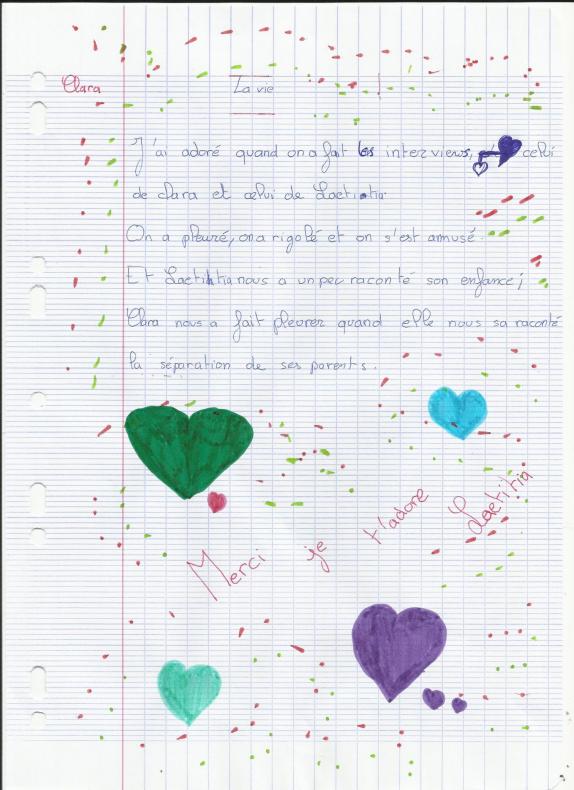 Clara
La vie
J'ai adoré quand on a fait les interviews, celui
de clara et celui de Laetitia
On a pleuré, on a rigolé et on s'est amusé.
Et Laetitia nous a un peu raconté son enfance ;
Clara nous a fait pleurer quand elle nous sa raconté
la séparation de ses parents.
Merci je t'adore Laetitia